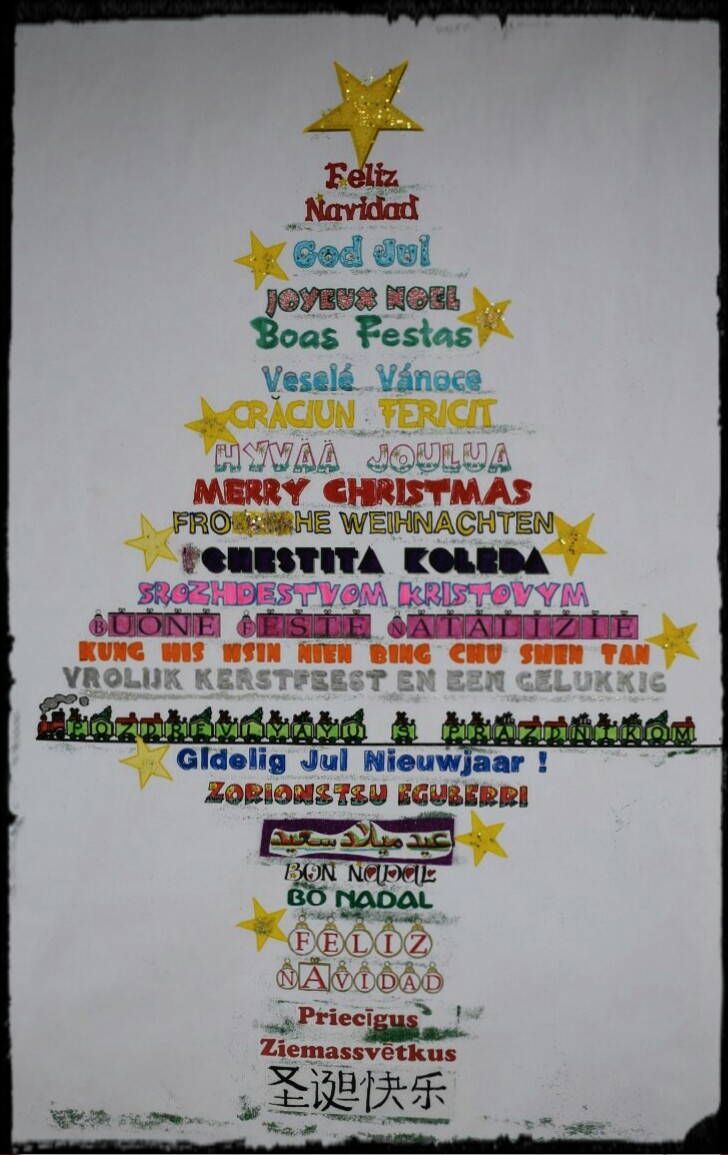 Feliz
Navidad
God Jul
JOYEUX NOEL
Boas Festas
Veselé Vánoce
CRĂCIUN FERICIT
HYVÄÄ JOULUA
MERRY CHRISTMAS
HE WEIHNACHTEN
CHESTITA KOLEDA
SROZHDESTVOM KRISTOVYM
BUONE FESTE NATALIZIE
KUNG HIS HSIN NIEN BING CHU SHEN TAN
VROLIJK KERSTFEEST EN EEN GELUKKIG
POZDREVLYAYU S PRAZDNIKOM
Gldelig Jul Nieuwjaar !
ZORIONSTSU EGUBERRI
عيد ميلاد سعيد
BON NADAL
BO NADAL
FELIZ
NAVIDAD
Priecīgus
Ziemassvētkus
圣诞快乐